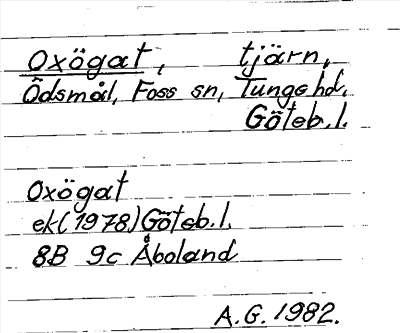 Oxögat, tjärn,
Ödsmål, Foss sn, Tunge hd.
Göteb. l.
Oxögat
ek (1978) Göteb. l.
8B 9c Åboland
A.G. 1982.